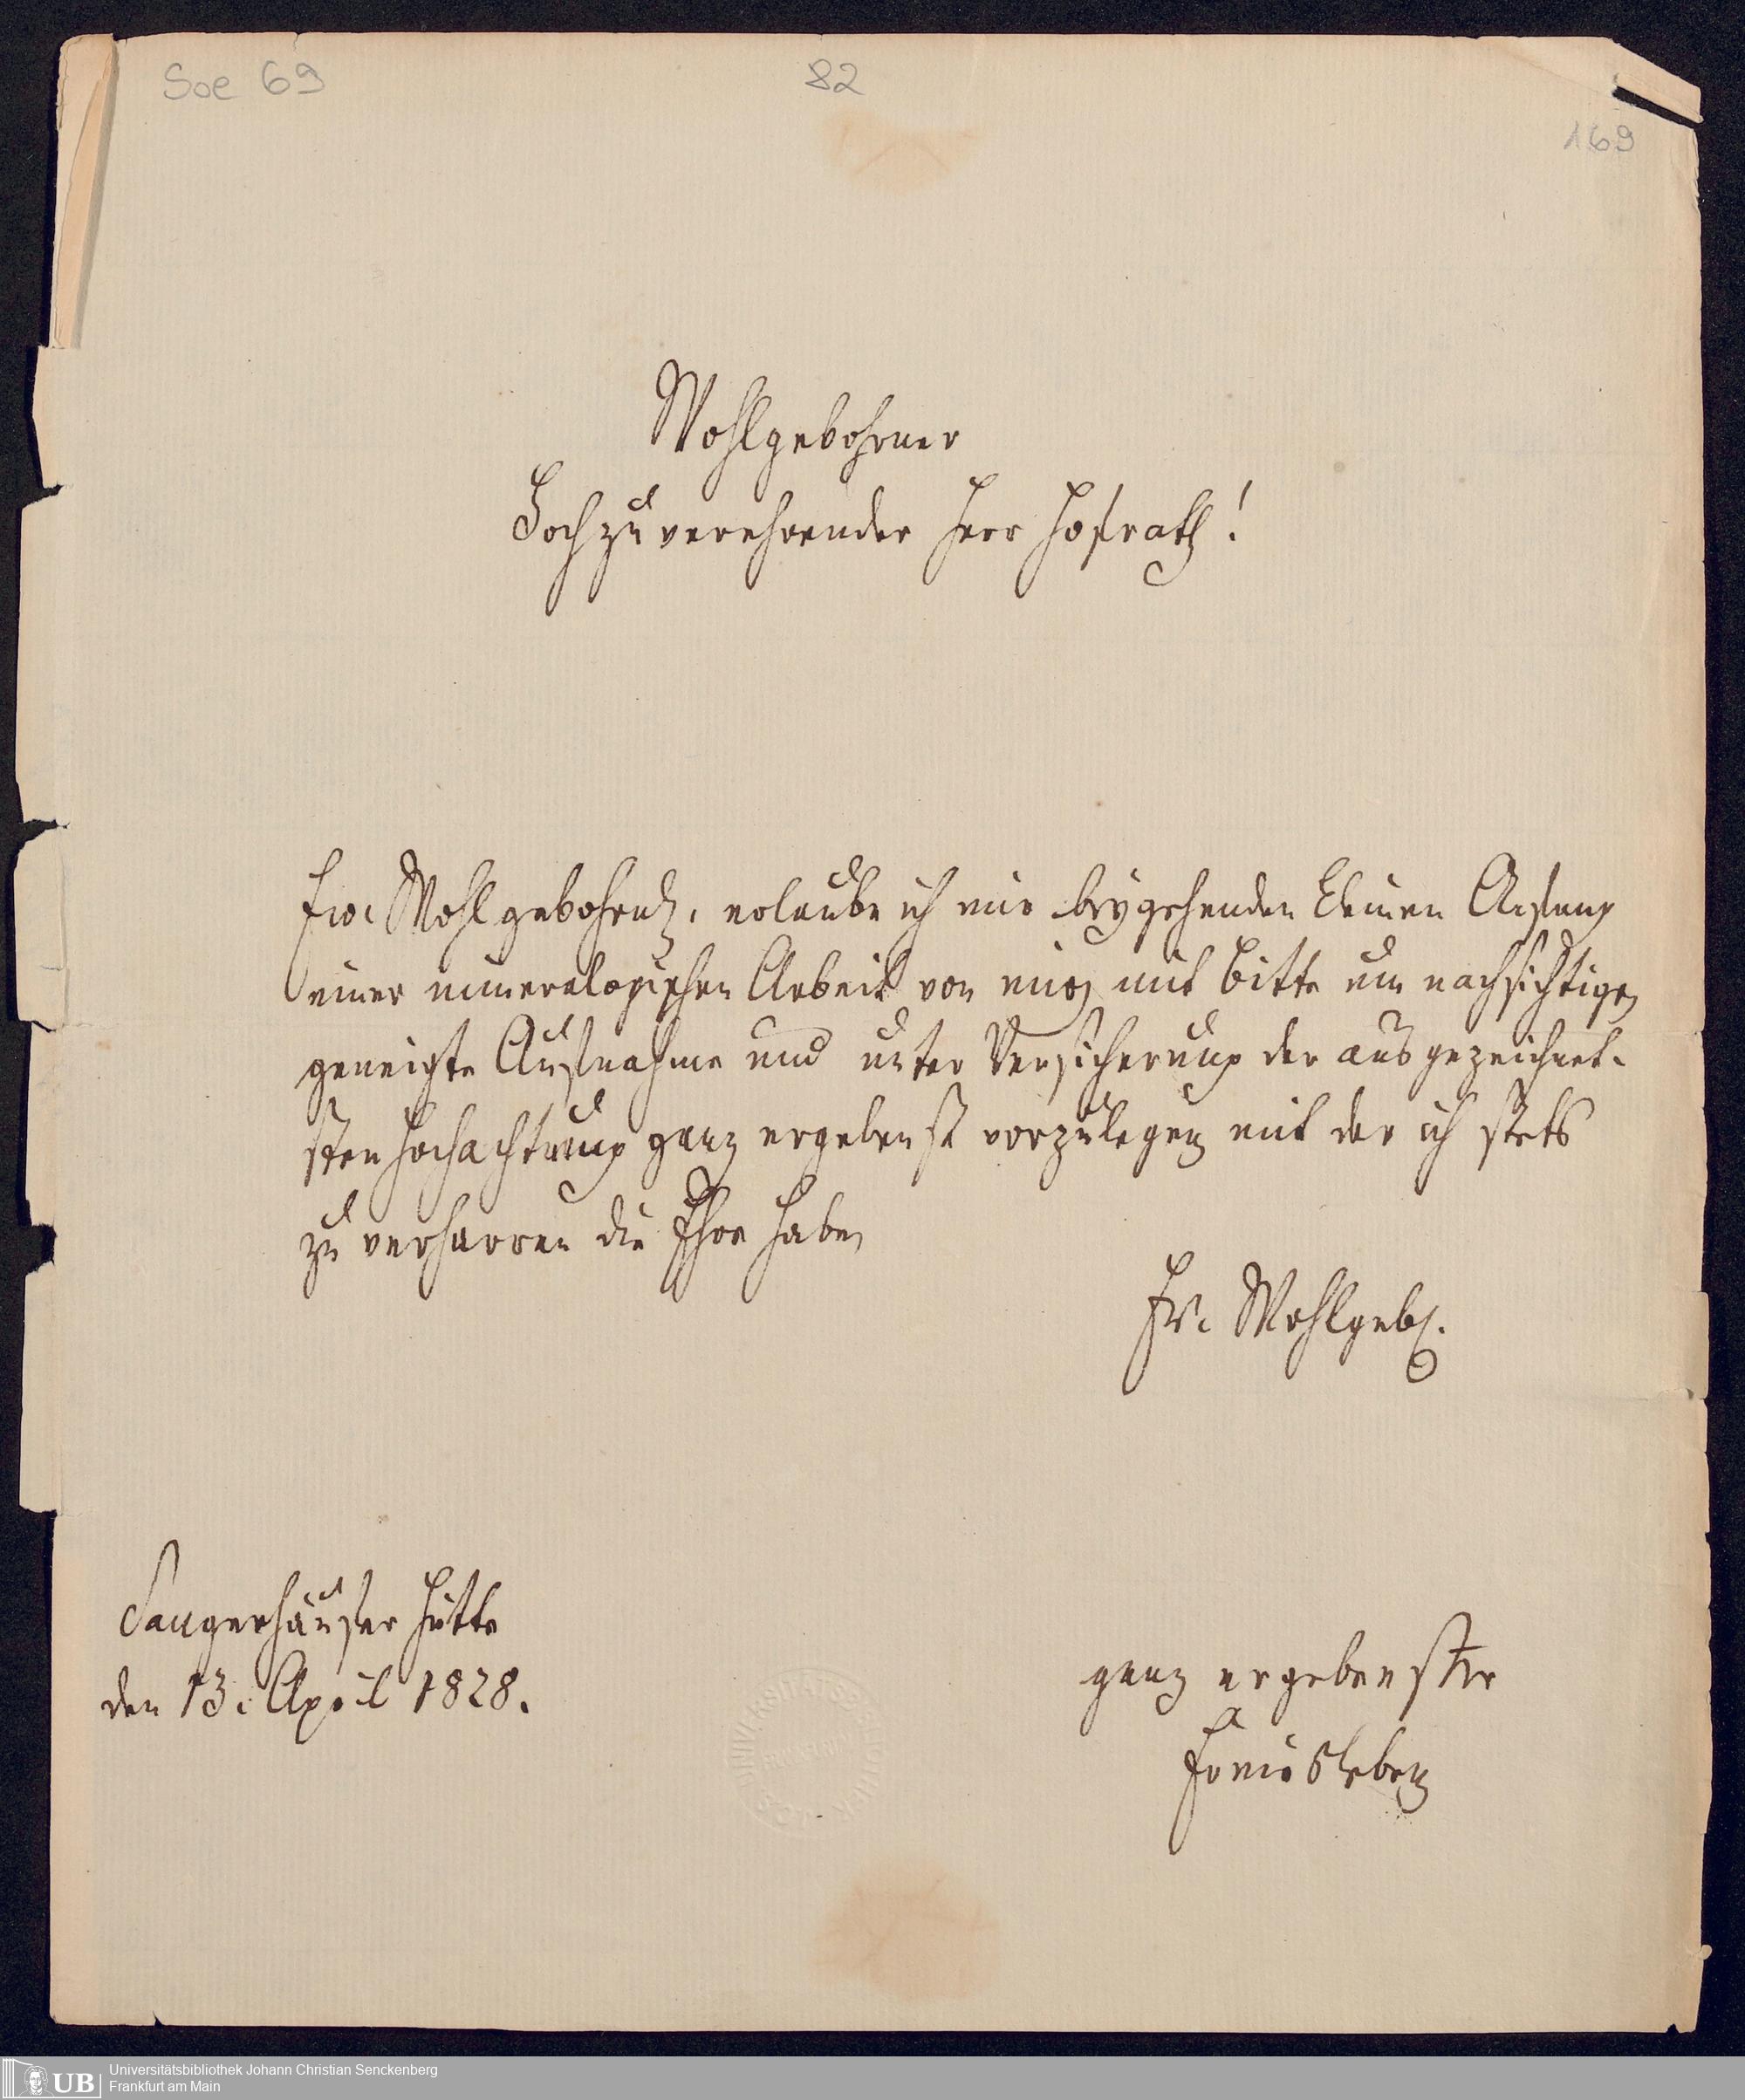 Soe 69
82
169
Wohlgebohrner
Hochzuverehrender Herr Hofrath!
Ew. Wohlgebohrn erlaube ich mir beygehenden kleinen Anfang
einer mineralogischen Arbeit von mir mit Bitte um nachsichtige
geneigte Aufnahme und unter Versicherung der ausgezeichnet-
sten Hochachtung ganz ergebenst vorzulegen mit der ich stets
zu verharren die Ehre habe
Ew. Wohlgeb.
Sangerhäuser Hütte
den 13. April 1828.
ganz ergebenster
UB
Universitätsbibliothek Johann Christian Senckenberg
Frankfurt am Main